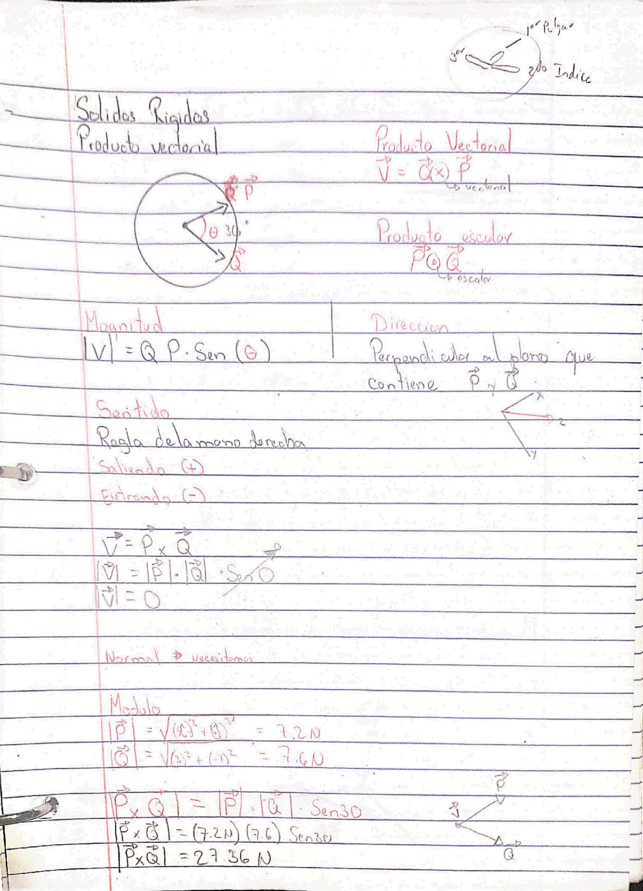 1er Pulgar
3er
2do Indice
Solidos Rigidos
Producto vectorial
Producto Vectorial
V = Q(x) P
↳ vectorial
P
θ 30°
Q
Producto escalar
P ⊙ Q
↳ escalar
Magnitud
|V| = Q P · Sen (θ)
Direccion
Perpendicular al plano que
contiene P y Q
x
z
y
Sentido
Regla de la mano derecha
Saliendo (+)
Entrando (-)
V = P x Q
|V| = |P| · |Q| · Sen 0
|V| = 0
Normal → necesitamos
Modulo
= 7.2 N
= 7.6 N
|P x Q| = |P| · |Q| · Sen30
|P x Q| = (7.2N) (7.6) Sen30
|P x Q| = 27 36 N
P
Q